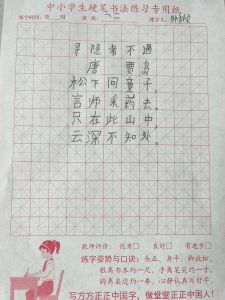 中小学生硬笔书法练习专用纸
练字时间: 第 周 班级: 练字人:
寻隐者不遇
唐 贾岛
松下问童子,
言师采药去。
只在此山中,
云深不知处。
教师评价: 优秀□ 良好□ 有进步□
练字姿势与口诀: 头正、身平、胸放松,
眼离书本约一尺、手离笔尖约一寸,
胸离桌边约一拳、心静认真写好字。
写方方正正中国字, 做堂堂正正中国人!